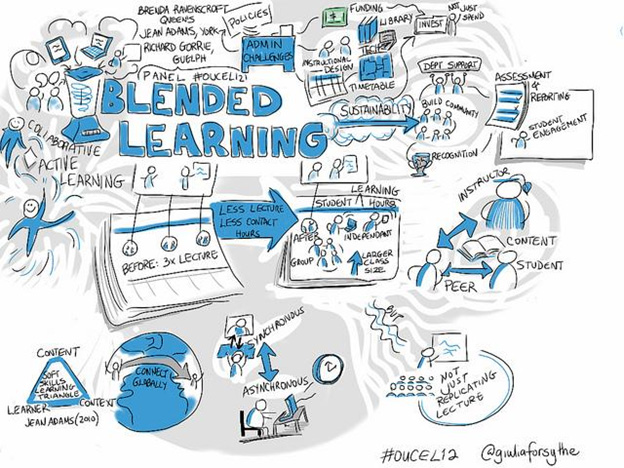 BRENDA RAVENSCROFT
QUEEN'S
JEAN ADAMS, YORK
RICHARD GORRIE,
GUELPH
(PANEL #OUCEL12)
POLICIES
ADMIN
CHALLENGES
FUNDING
$
LIBRARY
INSTRUCTIONAL
DESIGN
TECH
TIMETABLE
INVEST
NOT JUST
SPEND
DEPT SUPPORT
SUSTAINABILITY
BUILD COMMUNITY
RECOGNITION
ASSESSMENT
&
REPORTING
STUDENT
ENGAGEMENT
BLENDED
LEARNING
COLLABORATIVE
ACTIVE
LEARNING
BEFORE: 3x LECTURE
LESS LECTURE
LESS CONTACT
HOURS
LEARNING
STUDENT HOURS
AFTER
INDEPENDANT
GROUP
LARGER
CLASS
SIZE
INSTRUCTOR
CONTENT
STUDENT
PEER
CONTENT
SOFT
SKILLS
LEARNING
TRIANGLE
LEARNER
CONTEXT
JEAN ADAMS (2010)
CONNECT
GLOBALLY
SYNCHRONOUS
ASYNCHRONOUS
BUT
NOT
JUST
REPLICATING
LECTURE
#OUCEL12
@giuliaforsythe